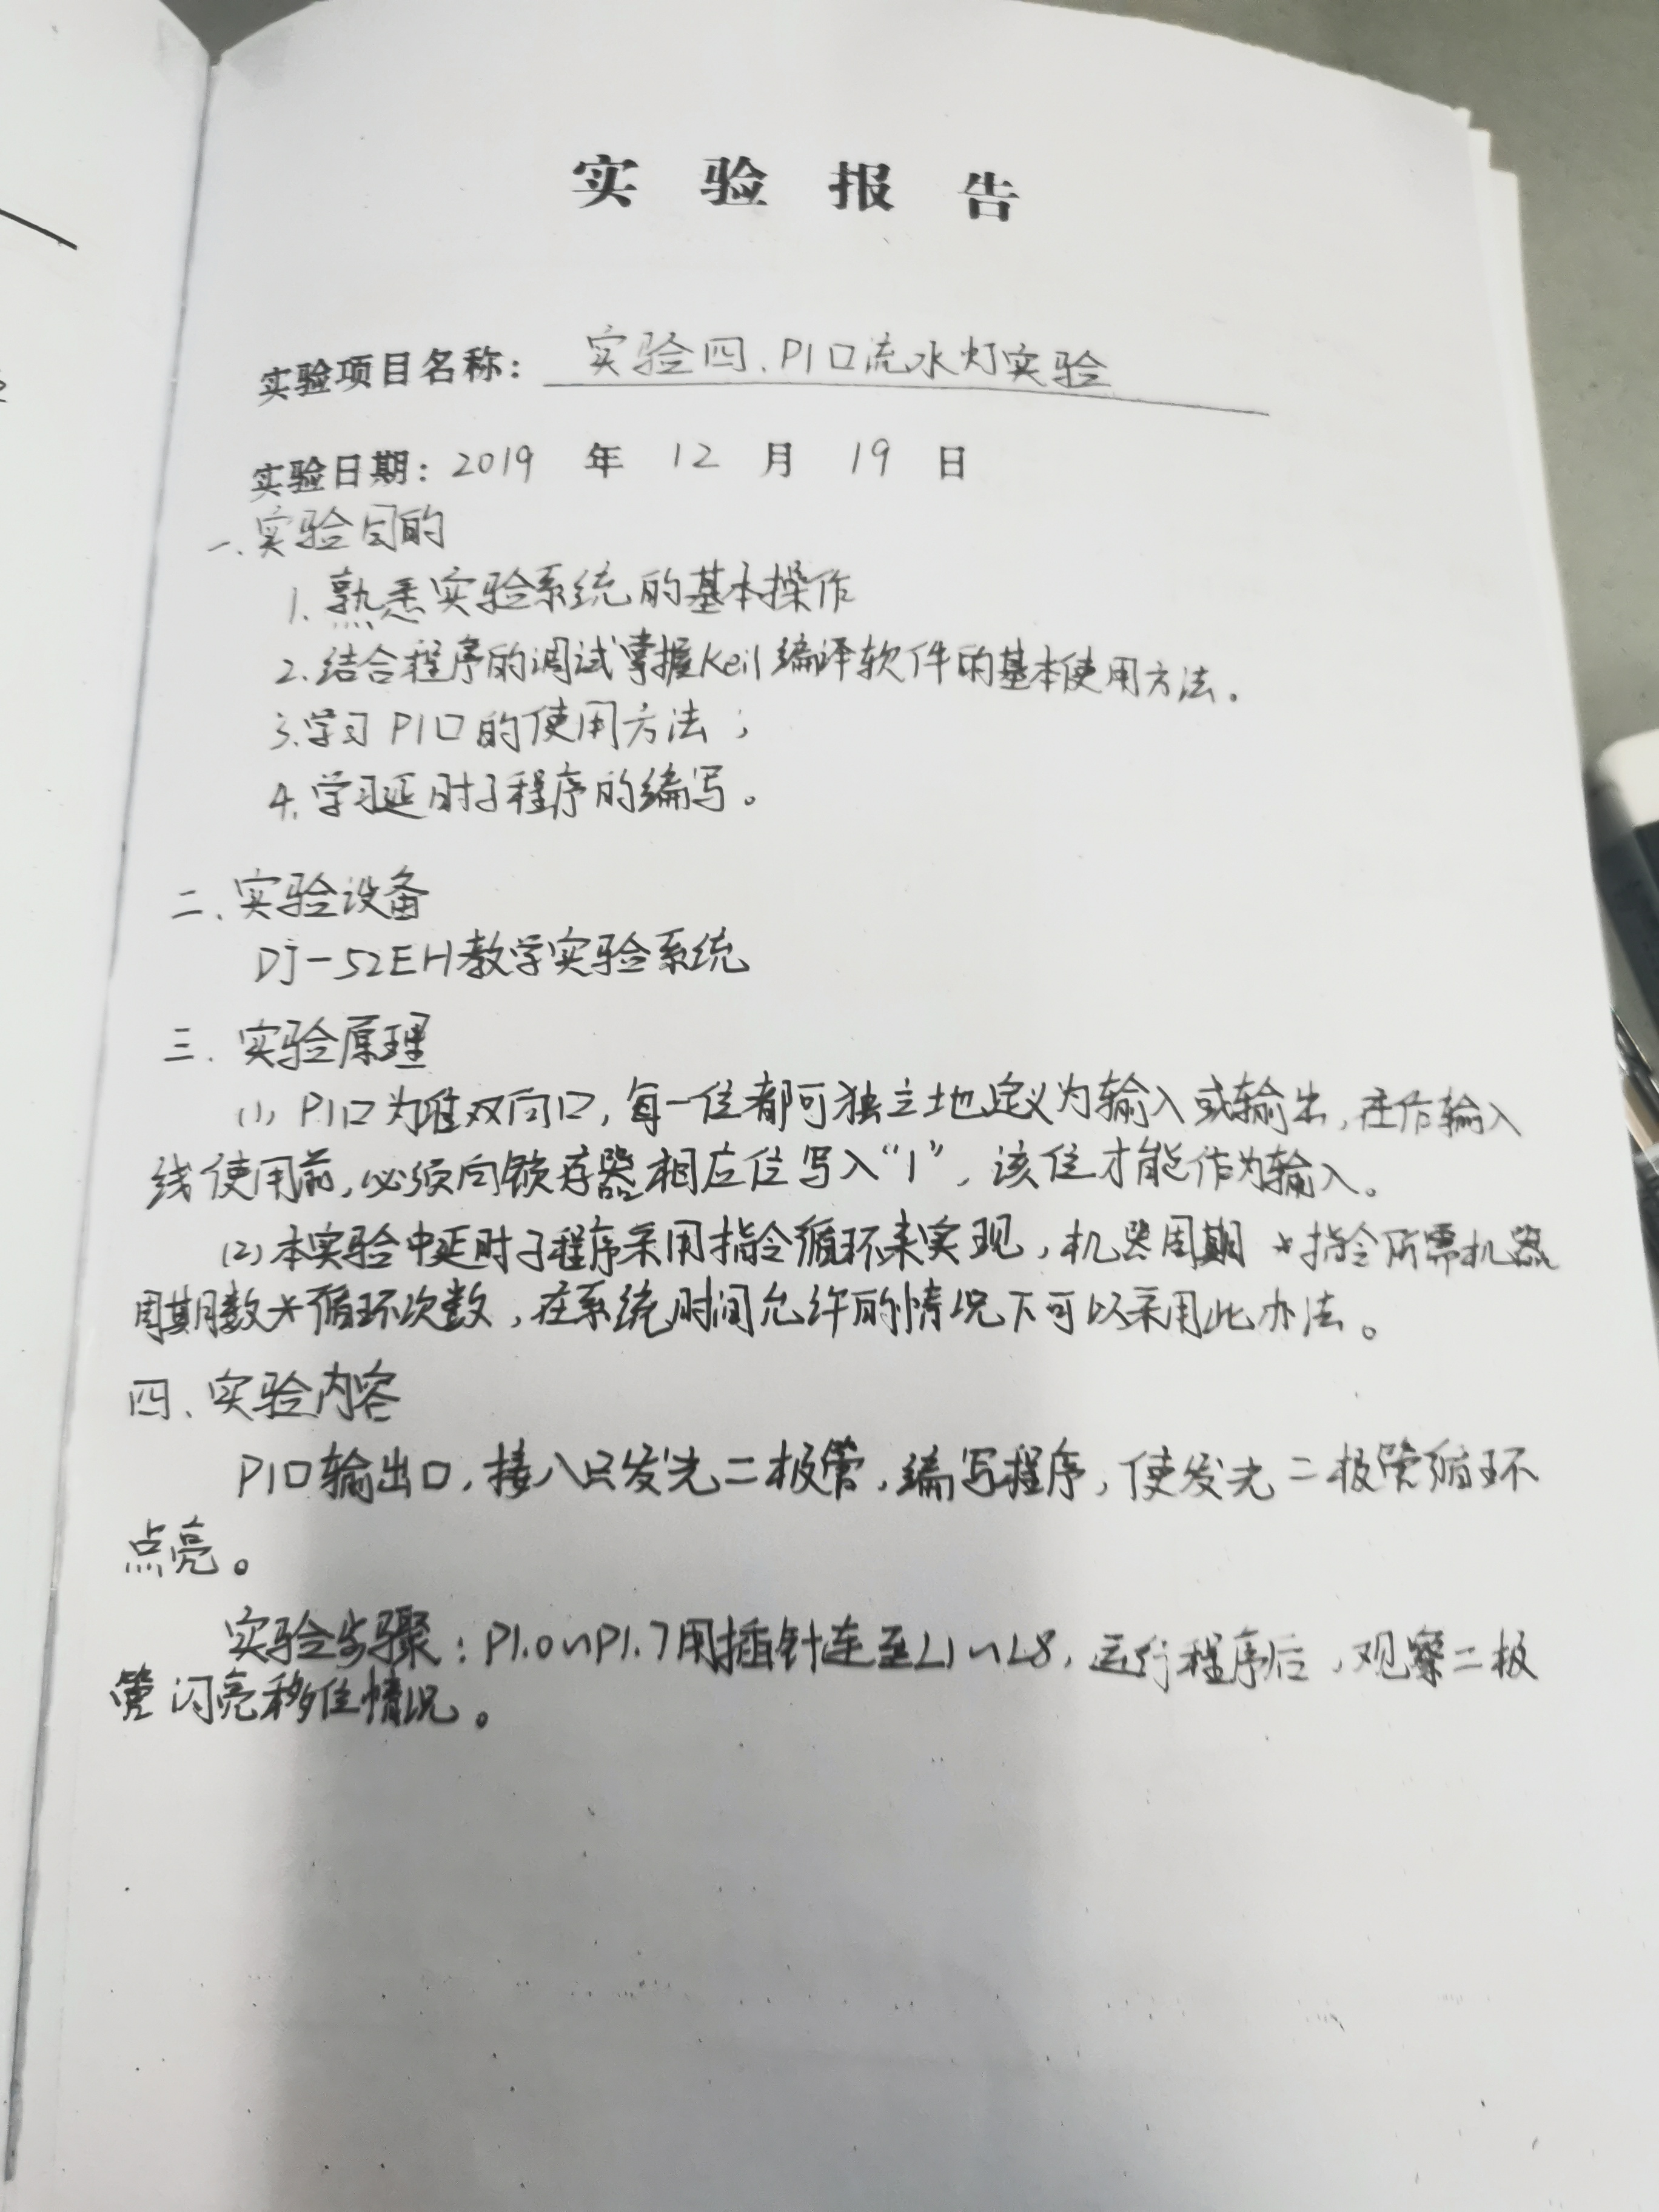 实验报告
实验项目名称：实验四、P1口流水灯实验
实验日期：2019 年 12 月 19 日
一、实验目的
1.熟悉实验系统的基本操作
2.结合程序的调试掌握Keil编译软件的基本使用方法。
3.学习P1口的使用方法；
4.学习延时子程序的编写。
二、实验设备
Dj-52EH教学实验系统
三．实验原理
(1)，P1口为准双向口，每一位都可独立地定义为输入或输出，在作输入
线使用前，必须向锁存器相应位写入“1”，该位才能作为输入。
(2)本实验中延时子程序采用指令循环来实现，机器周期*指令所需机器
周期数*循环次数，在系统时间允许的情况下可以采用此办法。
四、实验内容
P1口输出口，接八只发光二极管，编写程序，使发光二极管循环
点亮。
实验步骤：P1.0~P1.7用插针连至L1~L8，运行程序后，观察二极
管闪亮移位情况。